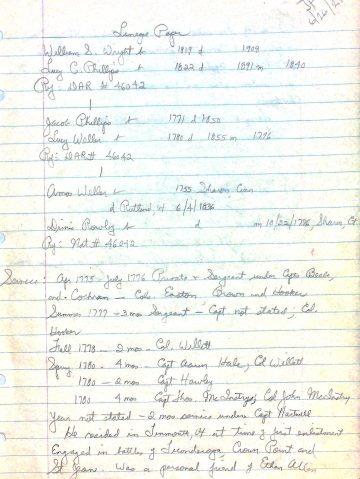 Lineage Paper
William S. Wright b 1819 d 1909
Lucy C. Phillips b 1822 d 1891 m 1840
Ref: DAR # 46042
Jacob Phillips b 1771 d 1850
Lucy Weller b 1780 d 1855 m 1796
Ref: DAR # 46042
Amos Weller b 1755 Sharon, Conn
d Rutland Vt 6/4/1836
Rowly b d m 10/22/1776, Sharon, Ct
Ref: Nat # 46042
Service: Apr 1775 - July 1776 Private & Sergeant under Capts Beebe,
and Cochran - Cols. Easton, Brown and Hooker
Summer 1777 - 3 mos Sergeant - Capt not stated, Col.
Hooker
Fall 1778 - 2 mos - Col. Willett
Spring 1780 - 4 mos - Capt Hale, Col Willett
1780 - 2 mos Capt Hawley
1780 4 mos Capt Thos. McInstry, Col John McInstry
Year not stated - 2 mos service under Capt Hartwell
He resided in Tinmouth, Vt at time of first enlistment
Engaged in battles of Ticonderoga, Crown Point and
St Jean. Was a personal friend of Ethan Allen